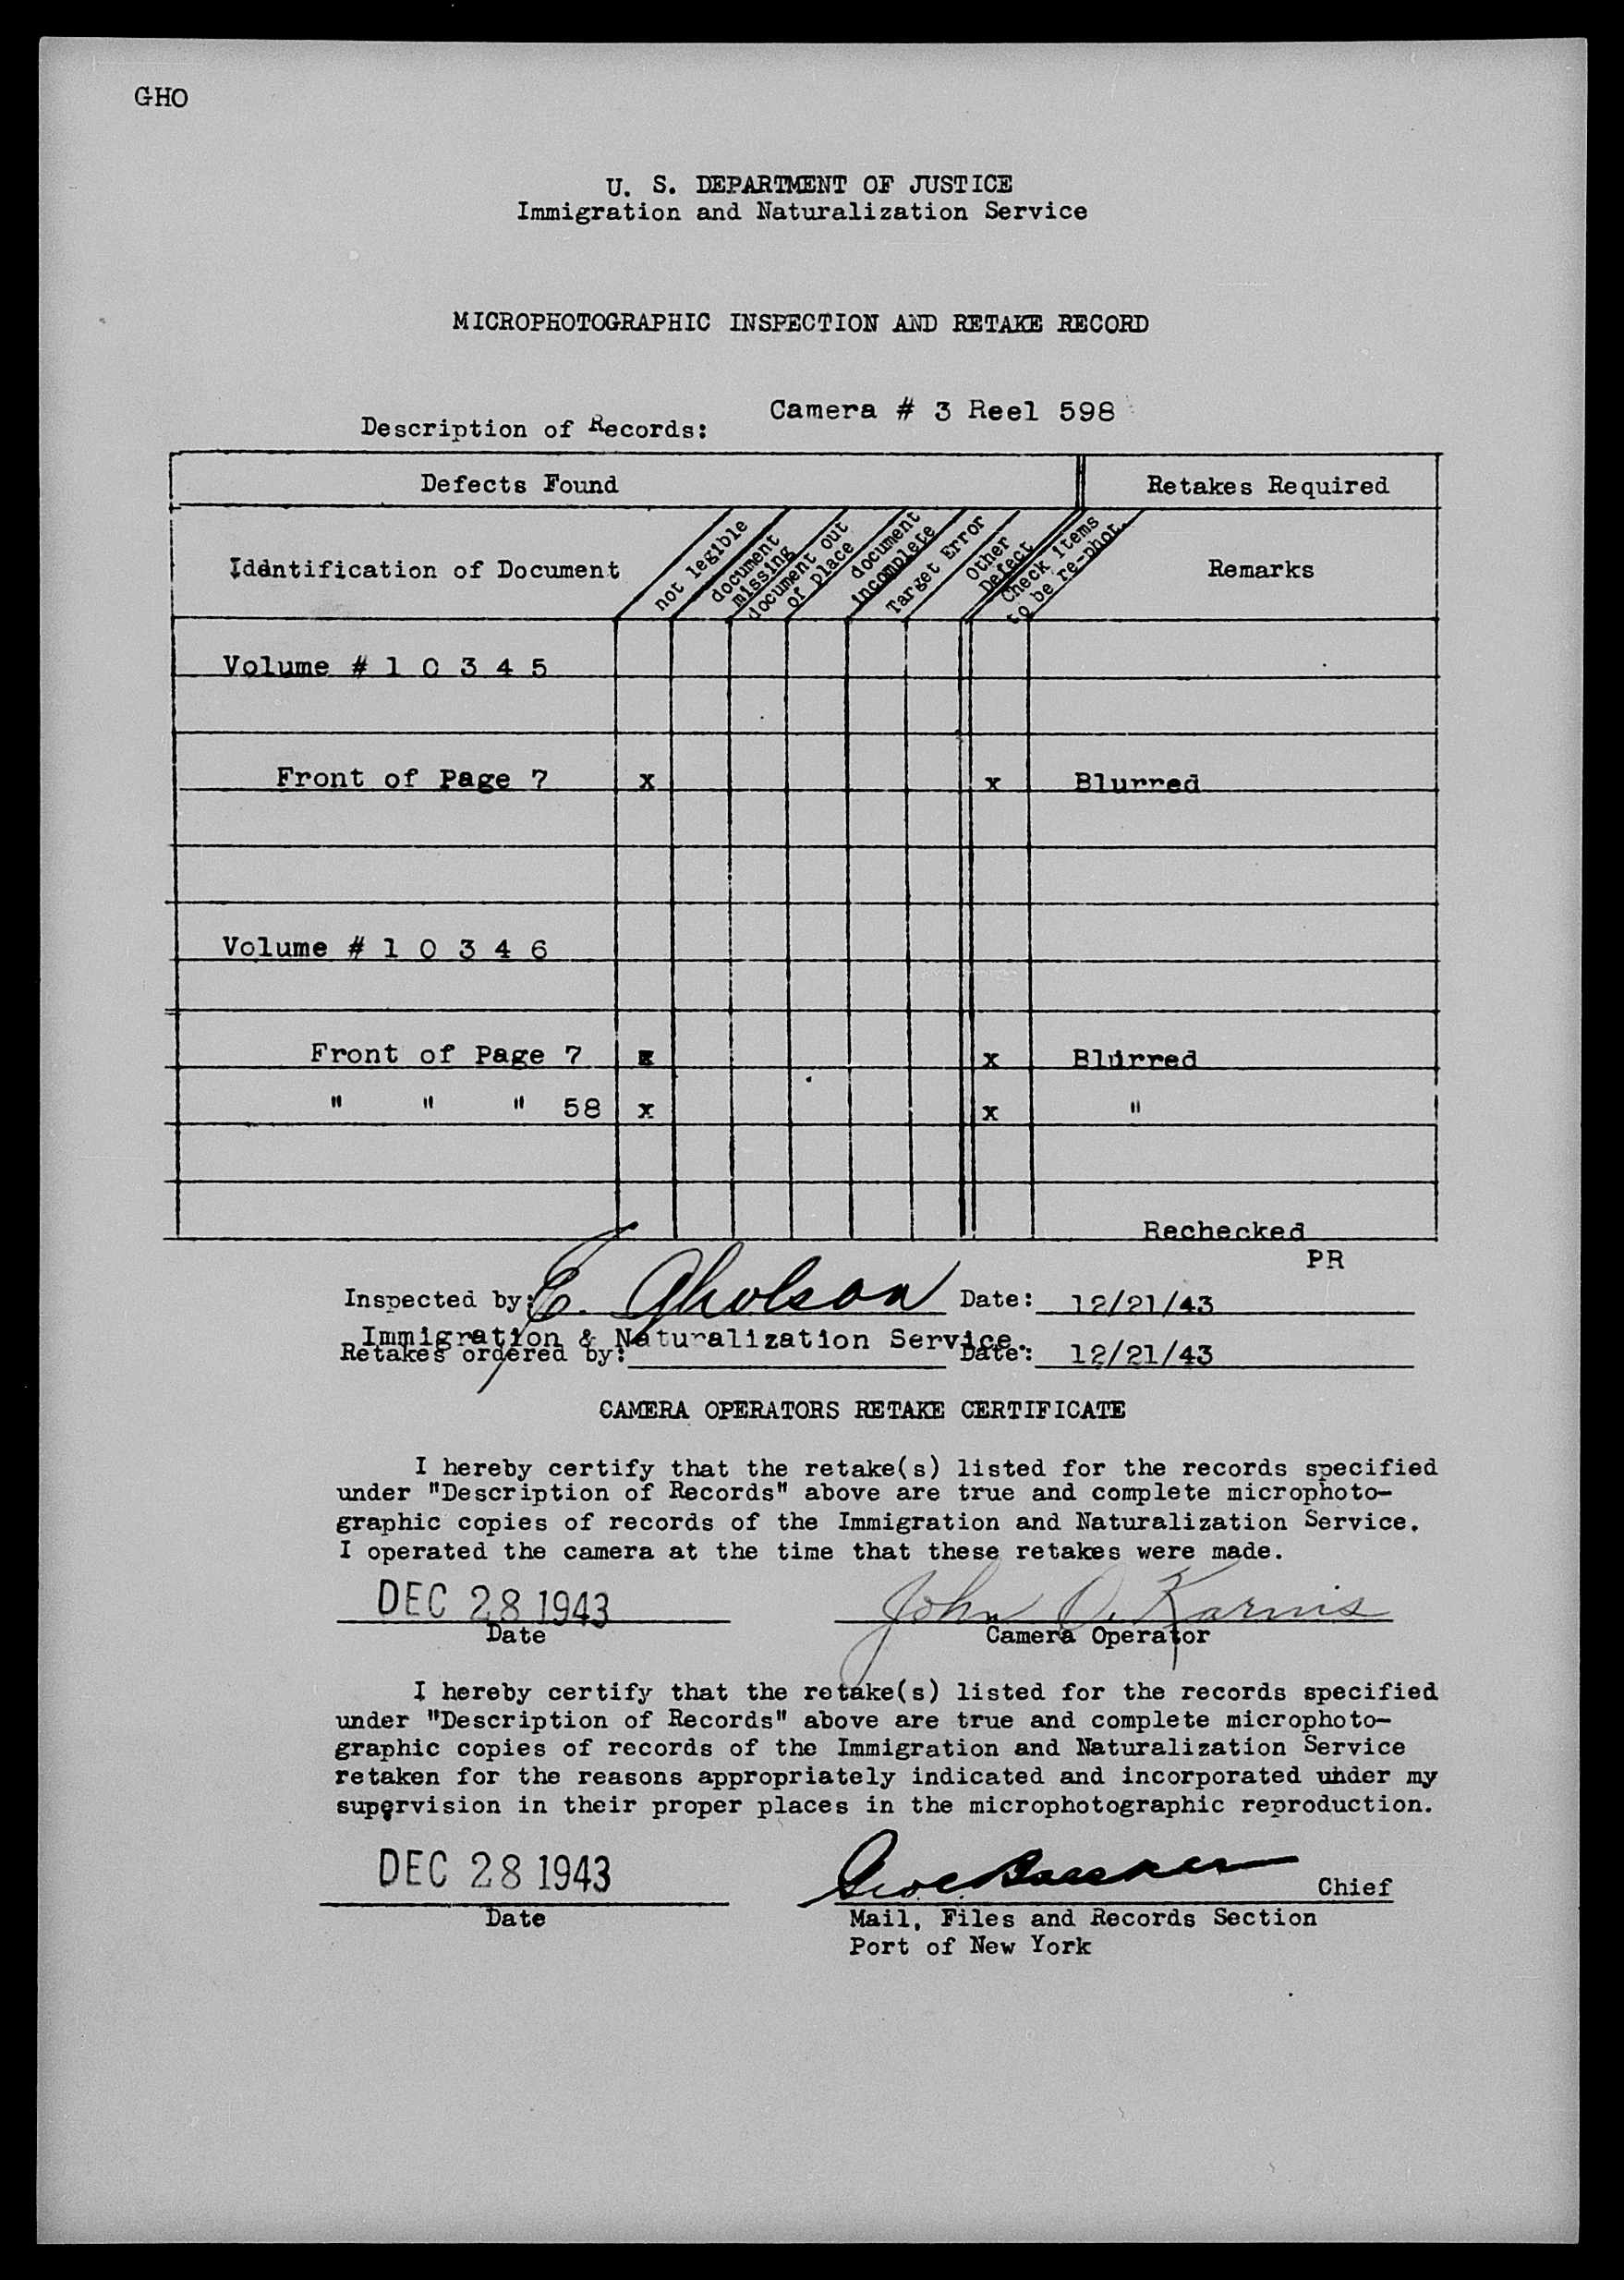 GHO
U. S. DEPARTMENT OF JUSTICE
Immigration and Naturalization Service
MICROPHOTOGRAPHIC INSPECTION AND RETAKE RECORD
Camera # 3 Reel 598
Description of Records:
Defects Found Retakes Required
Identification of Document
not legible
document missing
document out of place
document incomplete
Target Error
Other Defect
Check items to be re-phot.
Remarks
Volume # 1 0 3 4 5
Front of Page 7 x x Blurred
Volume # 1 0 3 4 6
Front of Page 7 x x Blurred
" " " 58 x x "
Rechecked
PR
Inspected by: E. Gholson Date: 12/21/43
Immigration & Naturalization Service.
Retakes ordered by: Date: 12/21/43
CAMERA OPERATORS RETAKE CERTIFICATE
I hereby certify that the retake(s) listed for the records specified
under "Description of Records" above are true and complete microphoto-
graphic copies of records of the Immigration and Naturalization Service.
I operated the camera at the time that these retakes were made.
DEC 28 1943 John O. Karnis
Date Camera Operator
I hereby certify that the retake(s) listed for the records specified
under "Description of Records" above are true and complete microphoto-
graphic copies of records of the Immigration and Naturalization Service
retaken for the reasons appropriately indicated and incorporated under my
supervision in their proper places in the microphotographic reproduction.
DEC 28 1943 Chief
Date Mail, Files and Records Section
Port of New York